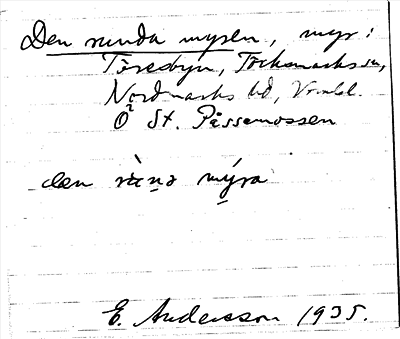 Den runda myren, myr i
Töresbyn, Töcksmarks sn,
Nordmarks hd, Vrmld.
Ö St. Pissemossen
den rùṉa mýra
E. Andersson 1935.